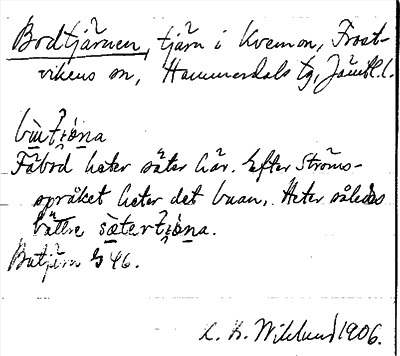 Bodtjärnen, tjärn i Kvemon, Frost-
vikens sn, Hammerdals tg, Jämtl. l.
Fäbod heter säter här. Efter Ströms-
språket heter det buan. Heter således
bättre sätertjɷ́na.
Butjärn G 46.
K. B. Wiklund 1906.